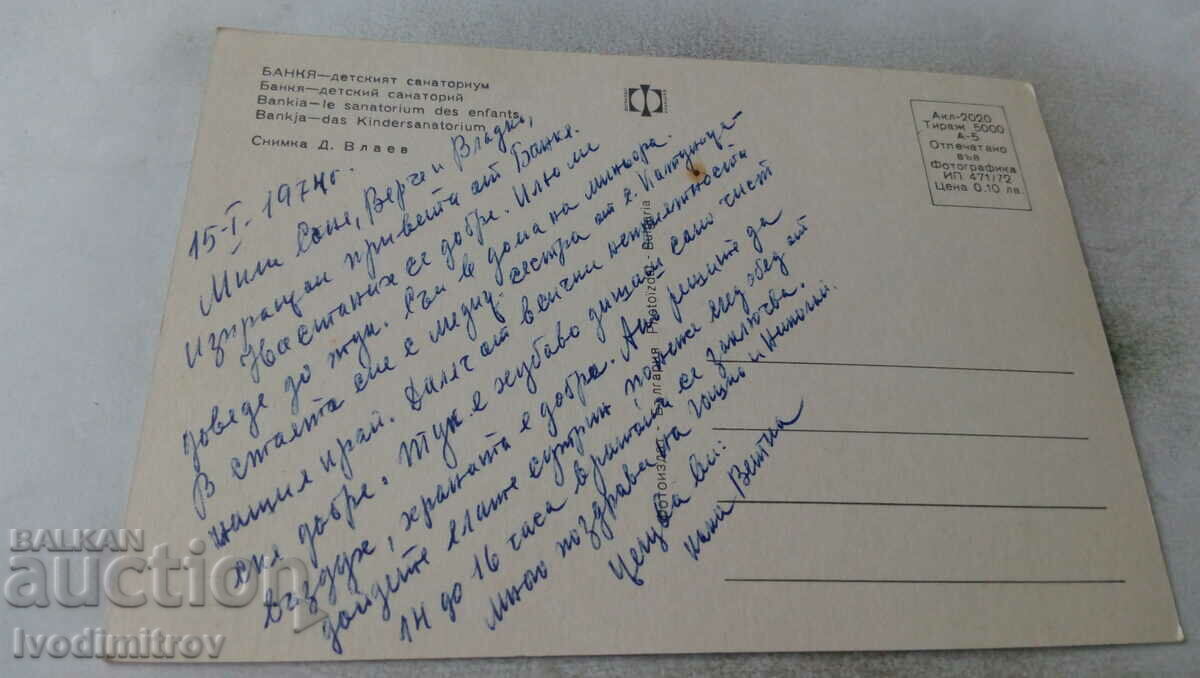 БАНКЯ—детският санаториум
Банкя—детский санаторий
Bankia—le sanatorium des enfants
Bankja—das Kindersanatorium
Снимка Д. Влаев
Акл-2020
Тираж 5000
А-5
Отпечатано
във
Фотографика
ИП 471/72
Цена 0.10 лв.
Фотоиздат · България Photoizdat · Bulgaria
15-I-1974г.
Мили Соне, Верче и Владко,
изпращам привети от Банкя.
Настаних се добре. Илю ме
доведе до тук. Съм в дома на миньора.
В стаята сме с медиц. сестра от с.
нашия край. Далеч от всички неприятности
сме добре. Тук е хубаво дишаш само чист
въздух, храната е добра. Ако решите да
дойдете елате сутрин понеже след обед от
14 до 16 часа вратата се заключва.
Много поздрави на Гошко и Николай.
Целува ви:
Ветка
BALKAN
auction
Ivodimitrov